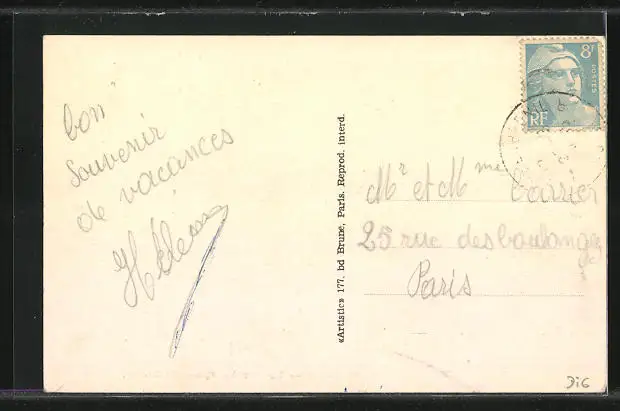 bon
souvenir
de vacances
«Artistic» 177. bd Brune, Paris. Reprod. interd.
8F
POSTES
RF
Mr et Mme Carrier
25 rue des boulangers
Paris
DiG